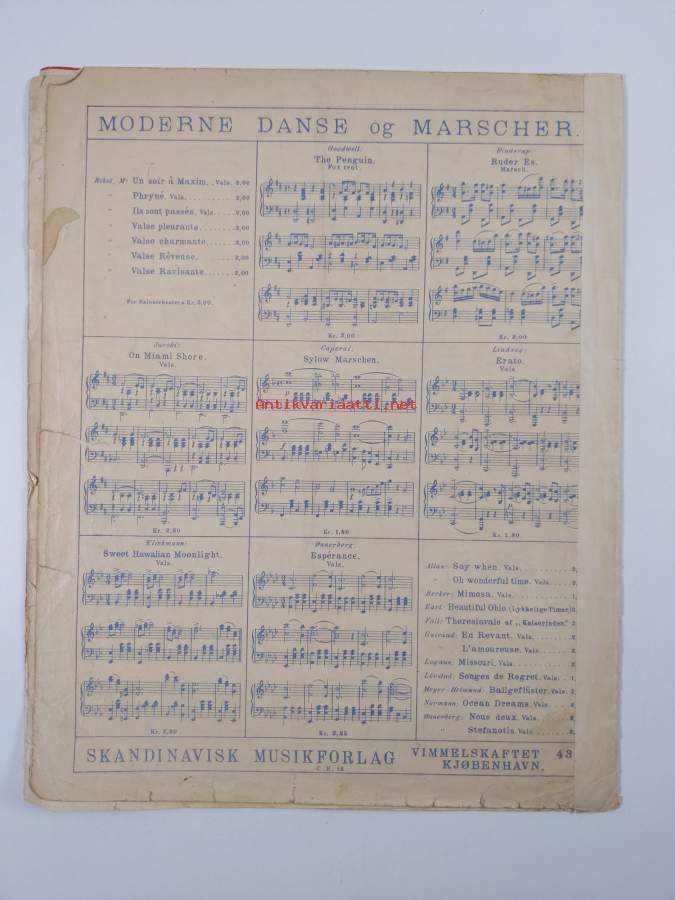 MODERNE DANSE og MARSCHER.
Ribot, M: Un soir à Maxim. Vals. 2,00
" Phryné. Vals. 2,00
" Ils sont passés. Vals. 2,00
" Valse pleurante 2,00
" Valse charmante 2,00
" Valse Rêveuse 2,00
" Valse Ravisante 2,00
For Salonorkester à Kr. 3,00.
Goodwell:
The Penguin.
Fox trot
Kr. 2,00
Binderup:
Ruder Es.
Marsch.
Kr. 2,00
Jacobi:
On Miami Shore.
Vals.
Kr. 2,80
Caporal:
Sylow Marschen.
Kr. 1,80
Lindsay:
Erato.
Vals.
Kr. 1,80
Antikvariaatti.net
Klickmann:
Sweet Hawaiian Moonlight.
Vals.
Kr. 2,80
Ønnerberg:
Espérance.
Vals.
Kr. 2,25
Allan: Say when. Vals 2,
" Oh wonderful time. Vals. 2,
Becker: Mimosa. Vals 1,
Earl: Beautiful Ohio (Lykkelige Timer) 2
Fall: Theresiavals af „Kaiserinden" 2
En Revant. Vals. 2,
" L'amoureuse. Vals. 2,
Logans: Missouri. Vals. 2,
Songes de Regret. Vals. 1,
Meyer-Helmund: Ballgeflüster. Vals. 2,
Normann: Ocean Dreams. Vals. 2,
Ønnerberg: Nous deux. Vals 2,
" Stefanotis. Vals 2,
SKANDINAVISK MUSIKFORLAG
VIMMELSKAFTET 43
KJØBENHAVN.